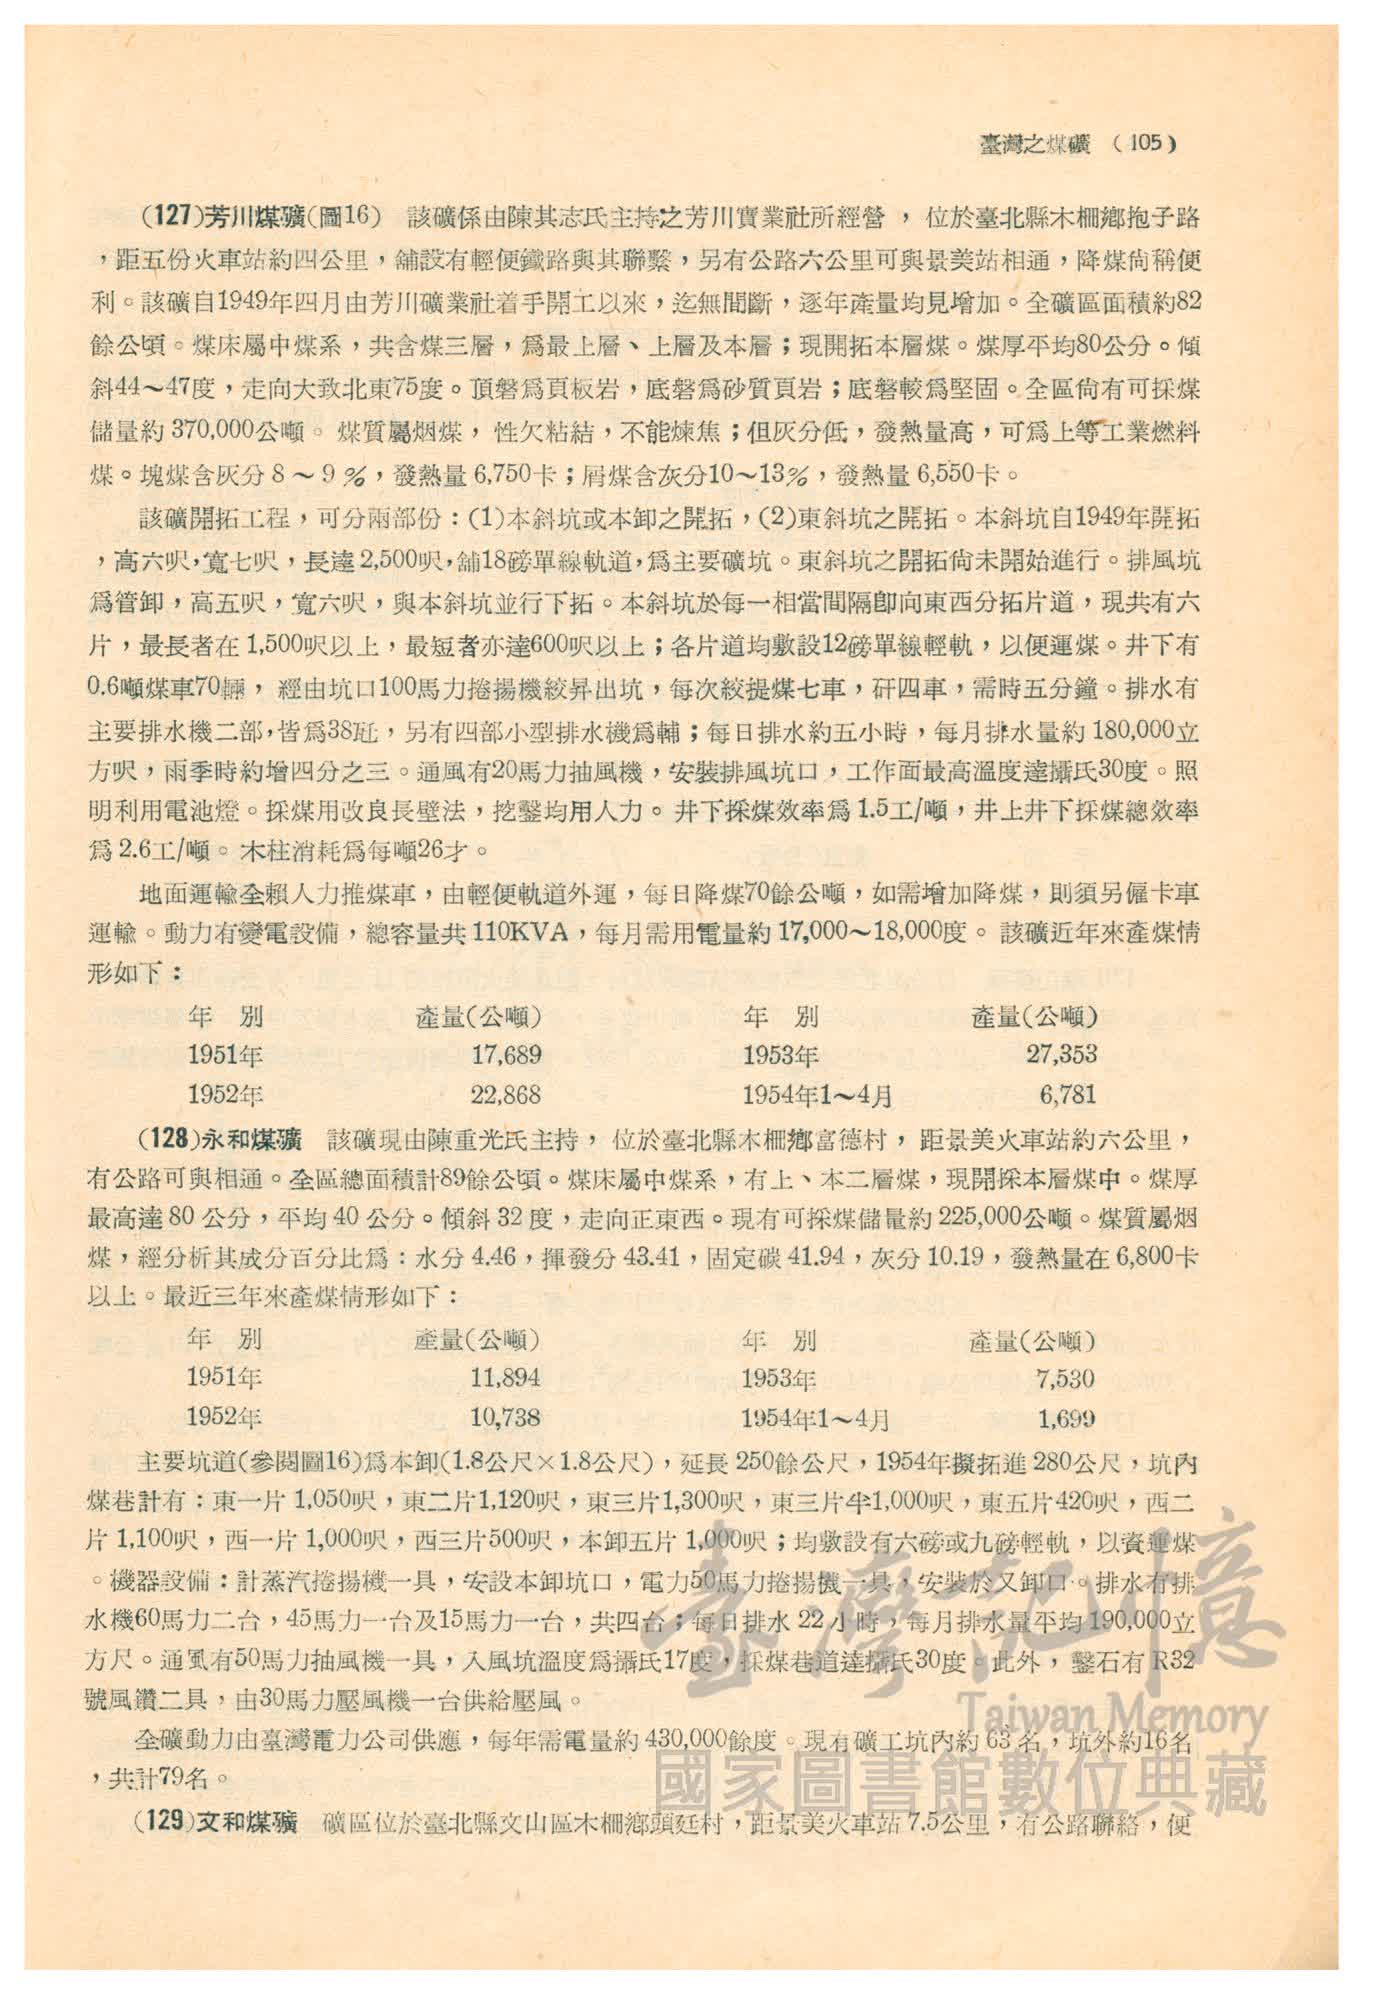 臺灣之煤礦 (105)
(127)芳川煤礦(圖16) 該礦係由陳其志氏主持之芳川實業社所經營，位於臺北縣木柵鄉抱子路
，距五份火車站約四公里，舖設有輕便鐵路與其聯繫，另有公路六公里可與景美站相通，降煤尙稱便
利。該礦自1949年四月由芳川礦業社着手開工以來，迄無間斷，逐年產量均見增加。全礦區面積約82
餘公頃。煤床屬中煤系，共含煤三層，爲最上層、上層及本層；現開拓本層煤。煤厚平均80公分。傾
斜44～47度，走向大致北東75度。頂磐爲頁板岩，底磐爲砂質頁岩；底磐較爲堅固。全區尙有可採煤
儲量約 370,000公噸。煤質屬烟煤，性欠粘結，不能煉焦；但灰分低，發熱量高，可爲上等工業燃料
煤。塊煤含灰分 8 ～ 9 %，發熱量 6,750卡；屑煤含灰分10～13%，發熱量 6,550卡。
該礦開拓工程，可分兩部份：(1)本斜坑或本卸之開拓，(2)東斜坑之開拓。本斜坑自1949年開拓
，高六呎，寬七呎，長達 2,500呎，舖18磅單線軌道，爲主要礦坑。東斜坑之開拓尙未開始進行。排風坑
爲管卸，高五呎，寬六呎，與本斜坑並行下拓。本斜坑於每一相當間隔卽向東西分拓片道，現共有六
片，最長者在 1,500呎以上，最短者亦達600呎以上；各片道均敷設12磅單線輕軌，以便運煤。井下有
0.6噸煤車70輛，經由坑口100馬力捲揚機絞昇出坑，每次絞提煤七車，矸四車，需時五分鐘。排水有
主要排水機二部，皆爲38瓩，另有四部小型排水機爲輔；每日排水約五小時，每月排水量約 180,000立
方呎，雨季時約增四分之三。通風有20馬力抽風機，安裝排風坑口，工作面最高溫度達攝氏30度。照
明利用電池燈。採煤用改良長壁法，挖鑿均用人力。井下採煤效率爲 1.5工/噸，井上井下採煤總效率
爲 2.6工/噸。木柱消耗爲每噸26才。
地面運輸全賴人力推煤車，由輕便軌道外運，每日降煤70餘公噸，如需增加降煤，則須另僱卡車
運輸。動力有變電設備，總容量共 110KVA，每月需用電量約 17,000～18,000度。該礦近年來產煤情
形如下：
年 別 產量(公噸) 年 別 產量(公噸)
1951年 17,689 1953年 27,353
1952年 22,868 1954年1～4月 6,781
(128)永和煤礦 該礦現由陳重光氏主持，位於臺北縣木柵鄉富德村，距景美火車站約六公里，
有公路可與相通。全區總面積計89餘公頃。煤床屬中煤系，有上、本二層煤，現開採本層煤中。煤厚
最高達 80 公分，平均 40 公分。傾斜 32 度，走向正東西。現有可採煤儲量約 225,000公噸。煤質屬烟
煤，經分析其成分百分比爲：水分 4.46，揮發分 43.41，固定碳 41.94，灰分 10.19，發熱量在 6,800卡
以上。最近三年來產煤情形如下：
年 別 產量(公噸) 年 別 產量(公噸)
1951年 11,894 1953年 7,530
1952年 10,738 1954年1～4月 1,699
主要坑道(參閱圖16)爲本卸(1.8公尺×1.8公尺)，延長 250餘公尺，1954年擬拓進 280公尺，坑內
煤巷計有：東一片 1,050呎，東二片1,120呎，東三片1,300呎，東三片半1,000呎，東五片420呎，西二
片 1,100呎，西一片 1,000呎，西三片500呎，本卸五片 1,000呎；均敷設有六磅或九磅輕軌，以資運煤
。機器設備：計蒸汽捲揚機一具，安設本卸坑口，電力50馬力捲揚機一具，安裝於又卸口。排水有排
水機60馬力二台，45馬力一台及15馬力一台，共四台；每日排水 22 小時，每月排水量平均 190,000立
方尺。通風有50馬力抽風機一具，入風坑溫度爲攝氏17度，採煤巷道達攝氏30度。此外，鑿石有 R32
號風鑽二具，由30馬力壓風機一台供給壓風。
全礦動力由臺灣電力公司供應，每年需電量約 430,000餘度。現有礦工坑內約 63 名，坑外約16名
，共計79名。
(129)文和煤礦 礦區位於臺北縣文山區木柵鄉頭廷村，距景美火車站 7.5公里，有公路聯絡，便
臺灣記憶
Taiwan Memory
國家圖書館數位典藏